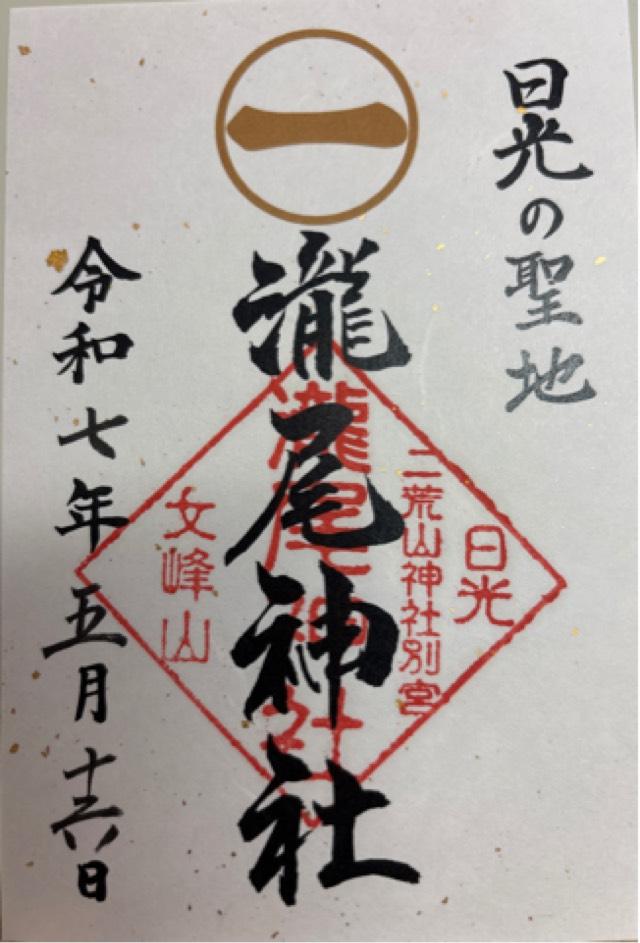 日光の聖地
一
瀧尾神社
日光
二荒山神社別宮
瀧尾神社
女峰山
令和七年五月十六日